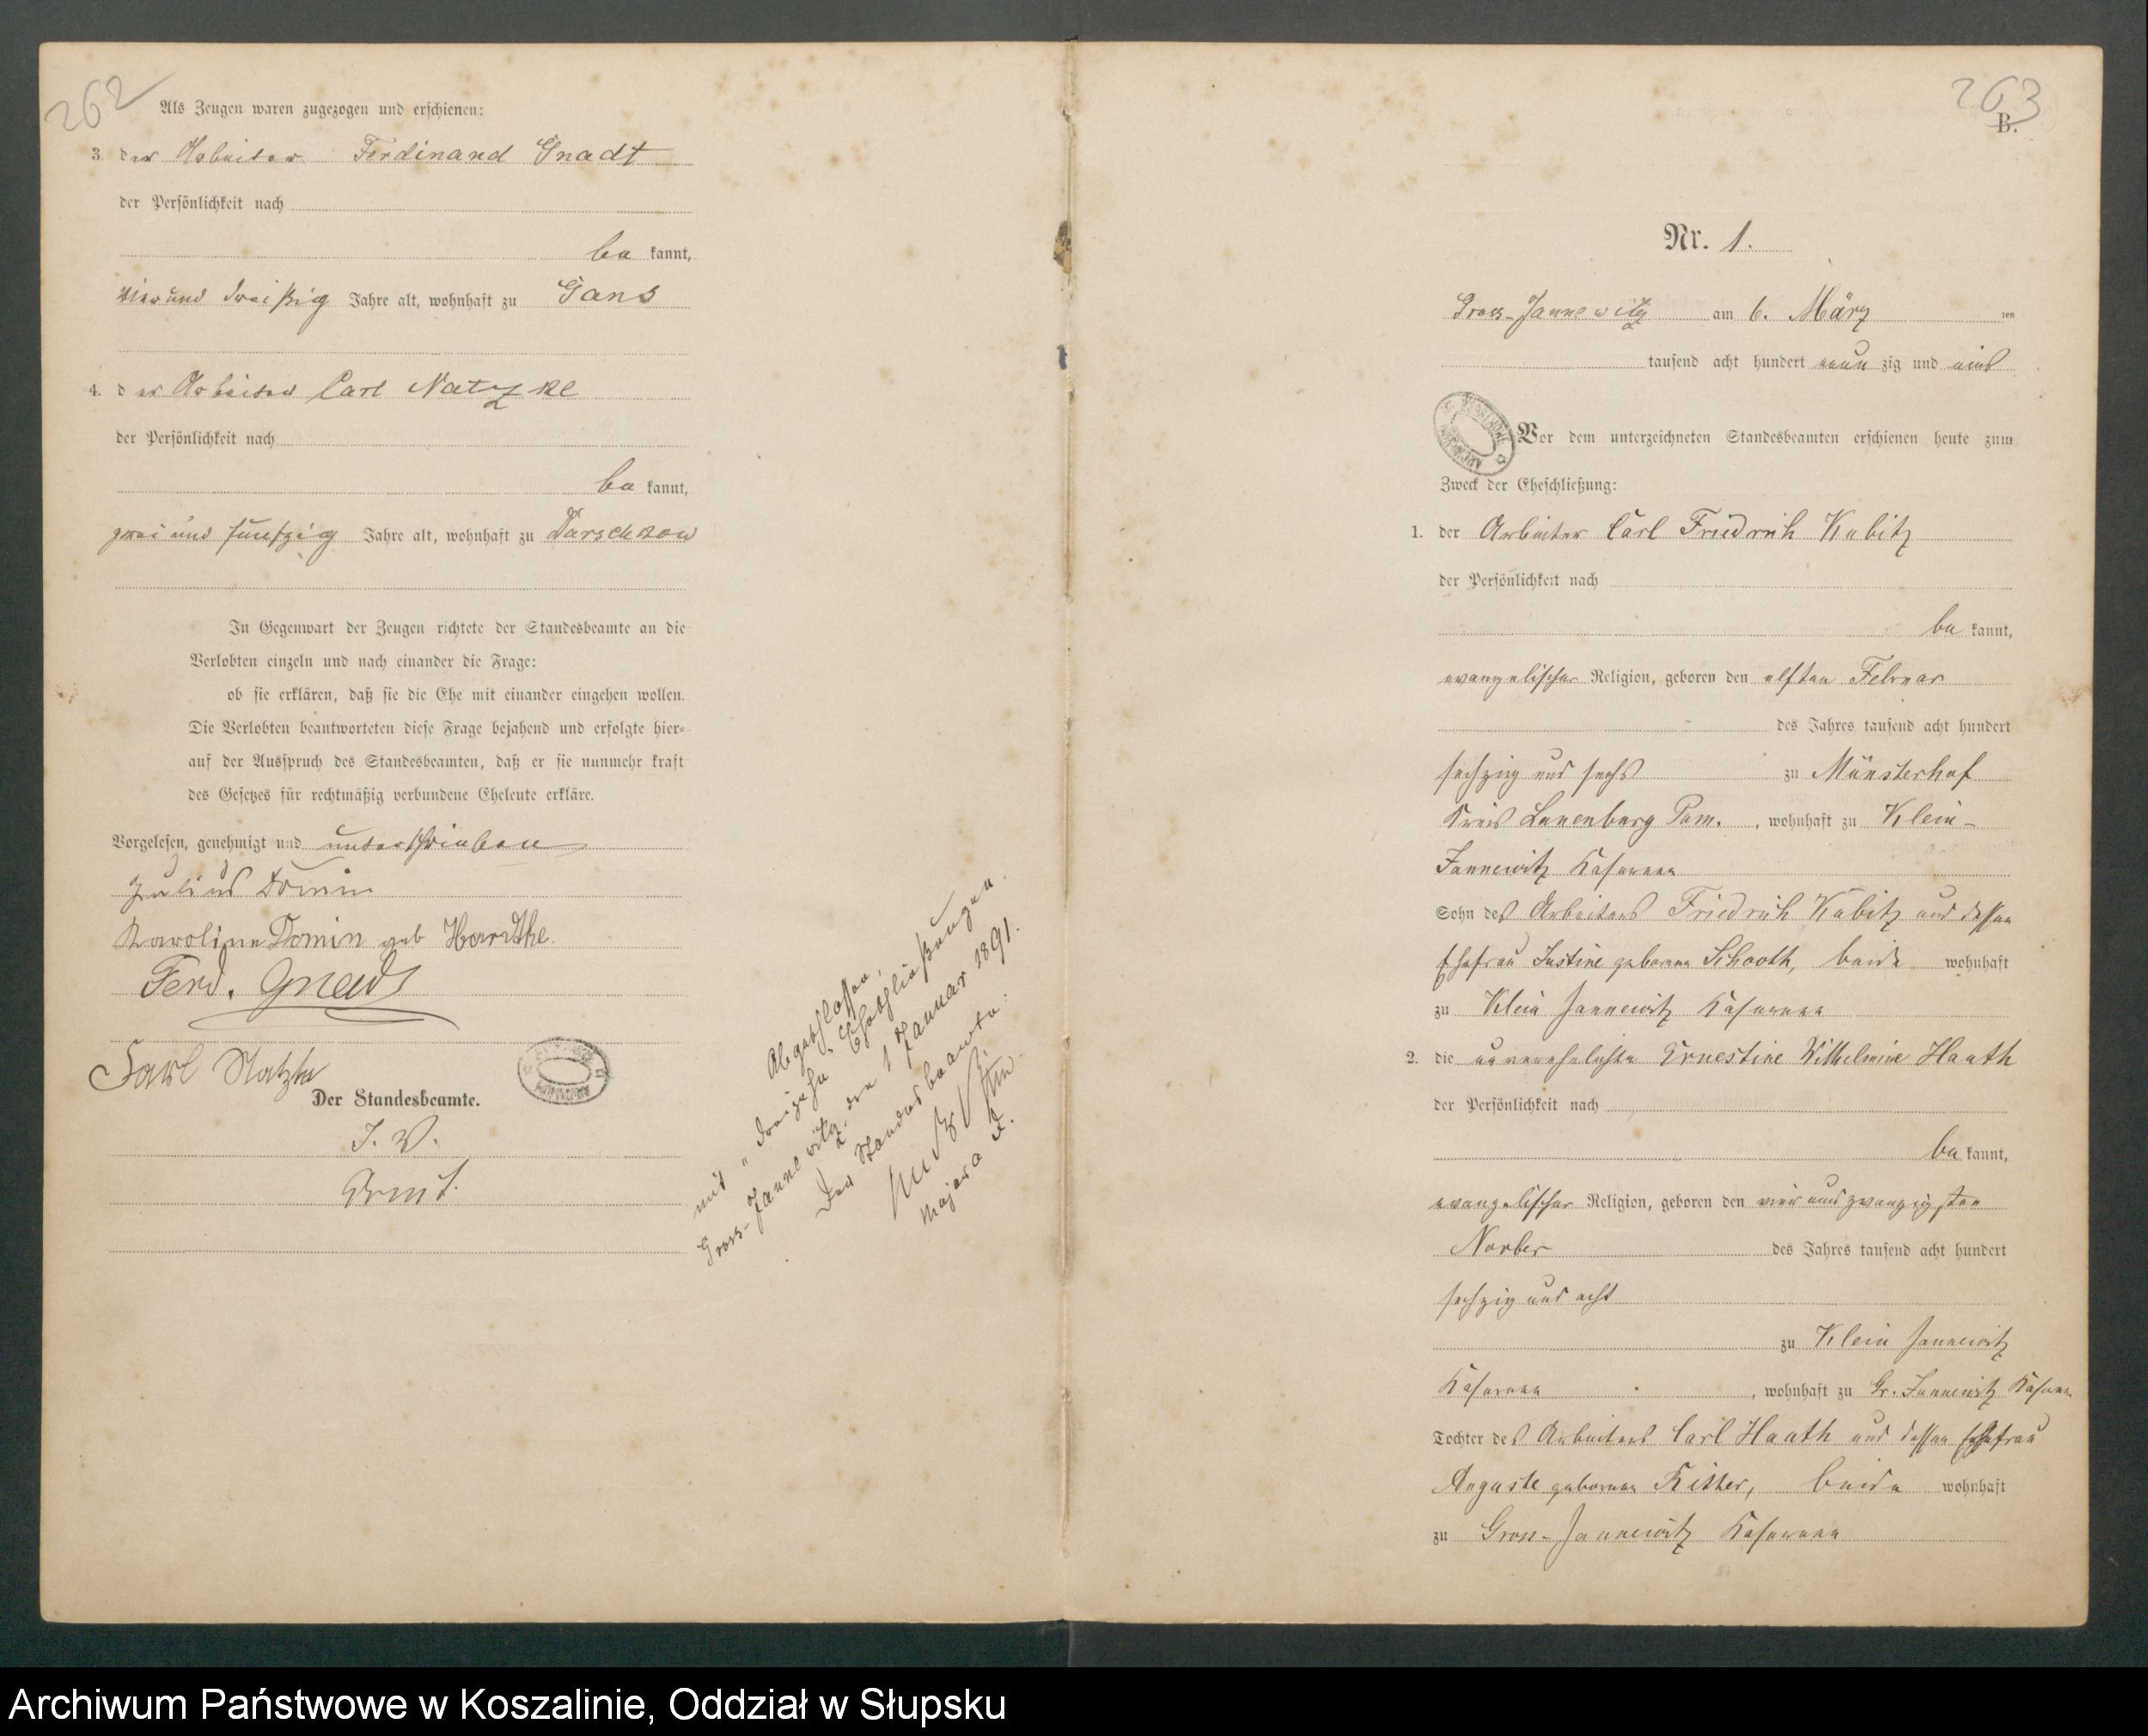 262
Als Zeugen waren zugezogen und erschienen:
3. der Arbeiter Ferdinand Gnadt
der Persönlichkeit nach
be kannt,
vierund dreißig Jahre alt, wohnhaft zu Gans
4. der Arbeiter Carl Natzke
der Persönlichkeit nach
be kannt,
zwei und fünfzig Jahre alt, wohnhaft zu Darschkow
In Gegenwart der Zeugen richtete der Standesbeamte an die
Verlobten einzeln und nach einander die Frage:
ob sie erklären, daß sie die Ehe mit einander eingehen wollen.
Die Verlobten beantworteten diese Frage bejahend und erfolgte hier-
auf der Ausspruch des Standesbeamten, daß er sie nunmehr kraft
des Gesetzes für rechtmäßig verbundene Eheleute erkläre.
Vorgelesen, genehmigt und unterschrieben
Julius Domin
Karoline Domin geb Hardthe.
Ferd. Gnadt
Carl Natzke
Der Standesbeamte.
I. V.
Abgeschlossen,
mit "dreizehn" Eheschließungen.
Gross-Jannewitz, den 1 Januar 1891.
Der Standesbeamte.
Major a D.
263
B.
Nr. 1.
Gross-Jannewitz am 6. März ten
tausend acht hundert neun zig und eins
Vor dem unterzeichneten Standesbeamten erschienen heute zum
Zweck der Eheschließung:
1. der Arbeiter Carl Friedrich Kubitz
der Persönlichkeit nach
be kannt,
evangelischer Religion, geboren den elften Februar
des Jahres tausend acht hundert
sechzig und sechs zu Münsterhof
Kreis Lauenburg Pom. , wohnhaft zu Klein-
Jannewitz Kaserne
Sohn des Arbeiters Friedrich Kubitz und dessen
Ehefrau Justine geborene Schooth, beide wohnhaft
zu Klein Jannewitz Kaserne
2. die unverehelichte Ernestine Wilhelmine Haath
der Persönlichkeit nach
be kannt,
evangelischer Religion, geboren den vier und zwanzigsten
Novber des Jahres tausend acht hundert
sechzig und acht
zu Klein Jannewitz
Kaserne , wohnhaft zu Gr. Jannewitz Kaserne
Tochter des Arbeiters Carl Haath und dessen Ehefrau
Auguste geborene Ritter, beide wohnhaft
zu Gross-Jannewitz Kaserne
Archiwum Państwowe w Koszalinie, Oddział w Słupsku